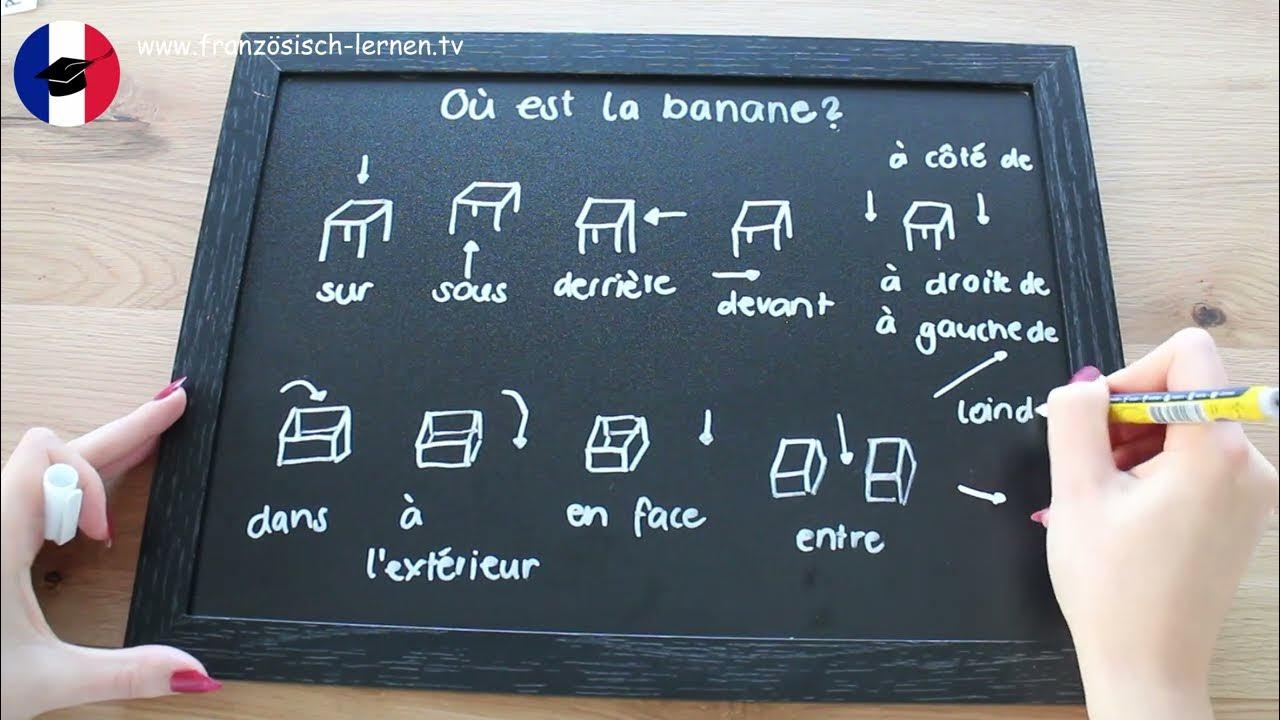 www.französisch-lernen.tv
Où est la banane?
à côté de
sur
sous
derrière
devant
à droite de
à gauche de
loin d
dans
à
l'extérieur
en face
entre